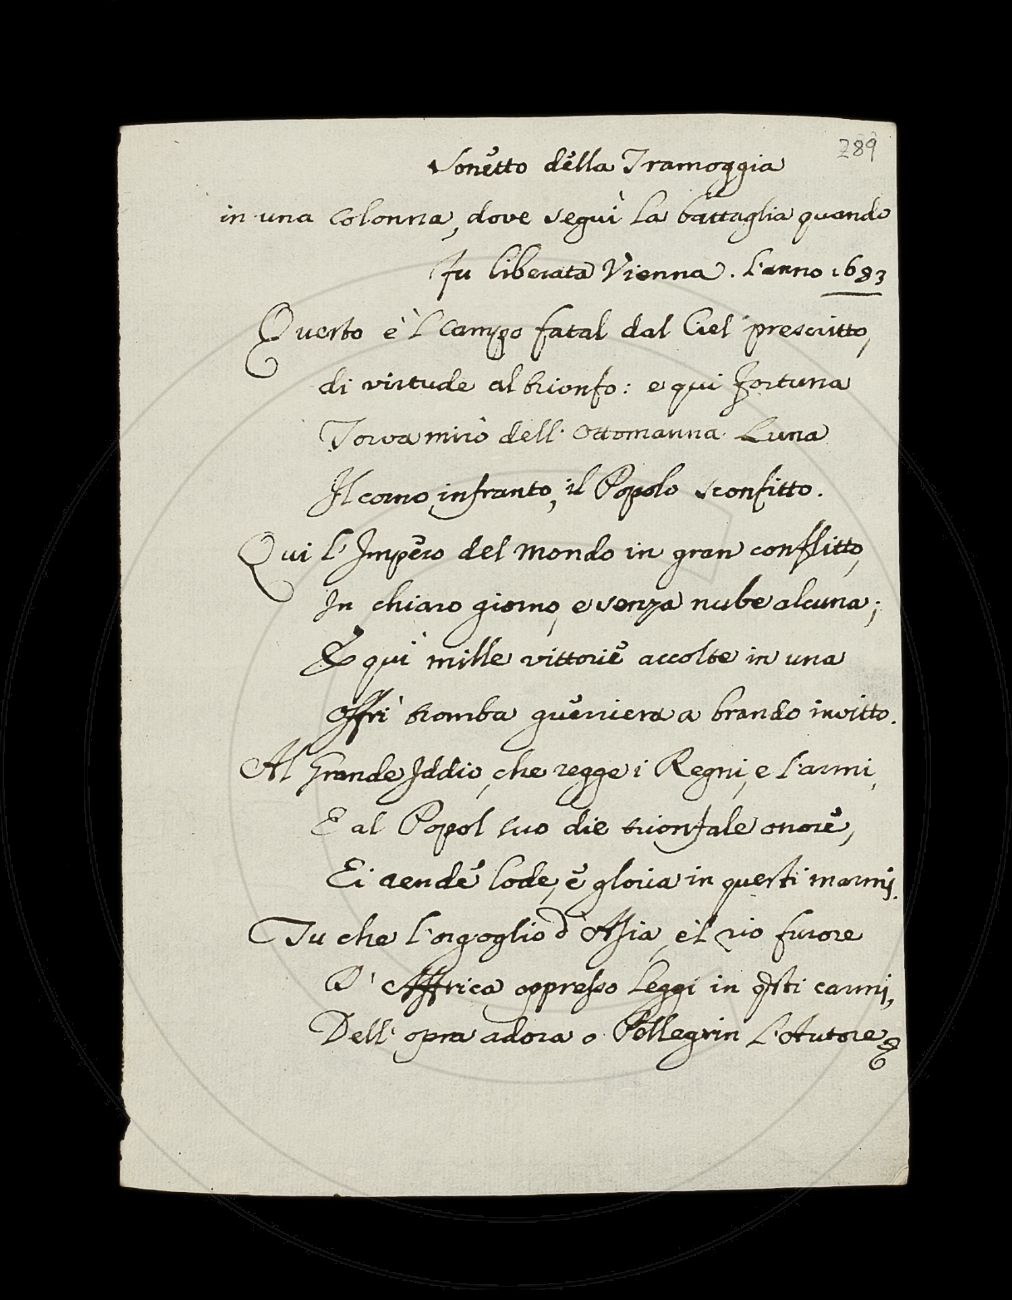 289
Sonetto della Tramoggia
in una Colonna, dove seguì la battaglia quando
fu liberata Vienna. L'anno 1683
Questo è 'l Campo fatal dal Ciel prescritto,
di virtude al trionfo: e qui fortuna
Torva mirò dell' Ottomanna Luna
Il corno infranto, il Popolo sconfitto.
Qui l'Impero del Mondo in gran conflitto,
In chiaro giorno, e senza nube alcuna;
E qui mille vittorie accolte in una
Offrì tromba guerriera a brando invitto.
Al Grande Iddio, che regge i Regni, e l'armi,
E al Popol suo die trionfale onore,
Ei rende lode, e gloria in questi marmi.
Tu che l'orgoglio d'Asia, e'l rio furore
D' Affrica oppresso leggi in q̃sti carmi,
Dell' opra adora o Pellegrin L'Autore